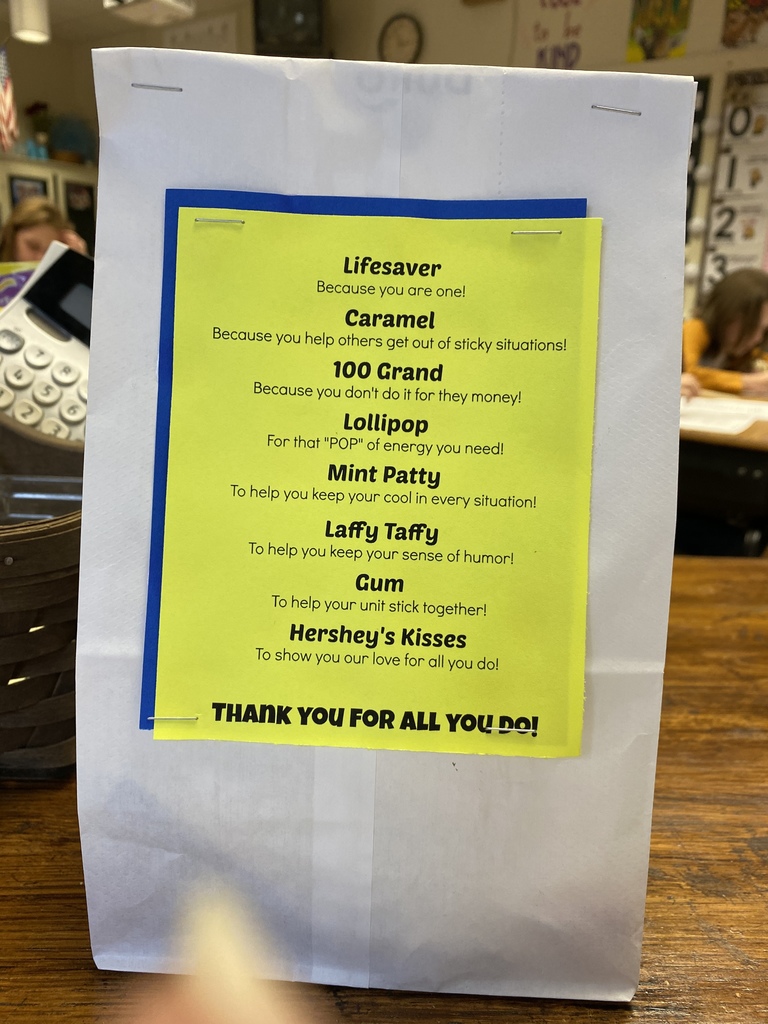 Lifesaver
Because you are one!
Caramel
Because you help others get out of sticky situations!
100 Grand
Because you don't do it for they money!
Lollipop
For that "POP" of energy you need!
Mint Patty
To help you keep your cool in every situation!
Laffy Taffy
To help you keep your sense of humor!
Gum
To help your unit stick together!
Hershey's Kisses
To show you our love for all you do!
THANK YOU FOR ALL YOU DO!
to be
KIND
0
1
2
3
7
8
4
5
6
2
3